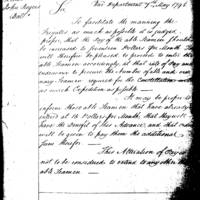 John Rogers
Sir,
War Department 7 May 1798
To facilitate the manning the
Frigates as much as possible it is judged
proper, that the Pay of the able Seamen should
be increased to seventeen Dollars per Month. You
will therefore be pleased to proceed to enter
able Seamen accordingly at that rate of Pay and
endeavour to procure the Number of able and ordi-
nary Seamen required for the Constitution with
as much Expedition as possible
It may be proper to
inform those able Seamen that have already
entered at 15 Dollars per Month, that they will
have the Benefit of this Advance, and that orders
will be given to pay them the additional
Sum
This Alteration of Pay is
not to be considered to extend to any other than
able Seamen